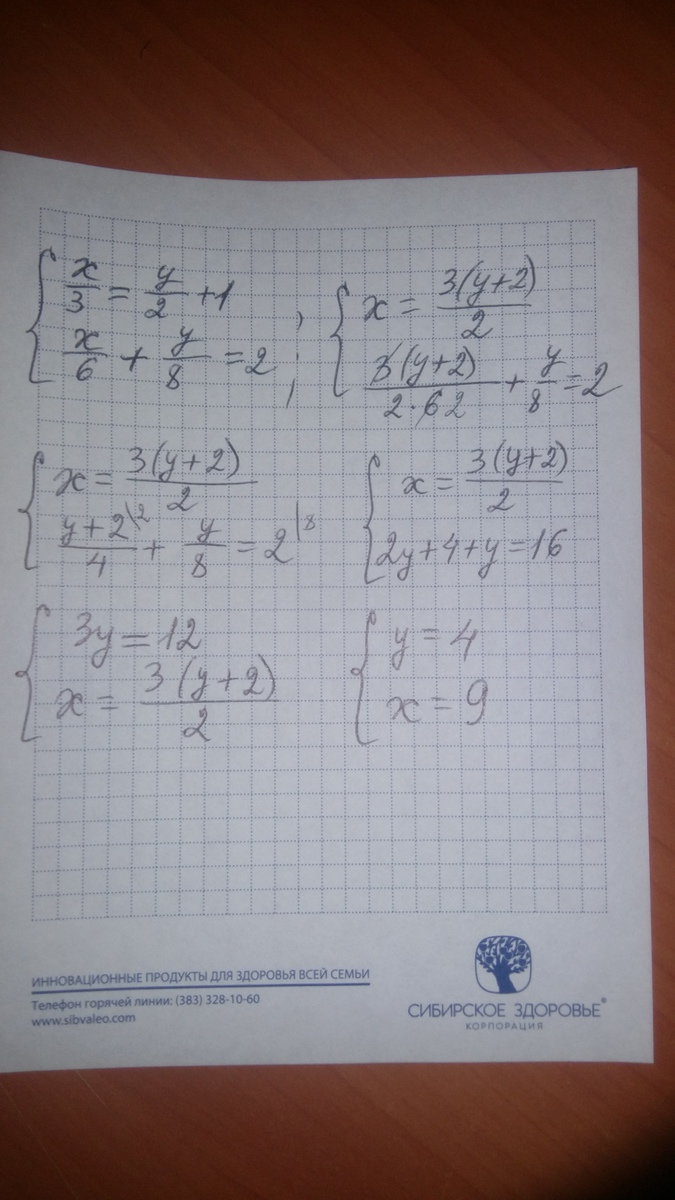 { x/3 = y/2 + 1 ; { x = 3(y+2)/2
x/6 + y/8 = 2 ; 3(y+2)/2·6 2 + y/8 = 2
{ x = 3(y+2)/2 { x = 3(y+2)/2
y+2\2/4 + y/8 = 2\8 2y+4+y=16
{ 3y = 12 { y = 4
x = 3(y+2)/2 x = 9
ИННОВАЦИОННЫЕ ПРОДУКТЫ ДЛЯ ЗДОРОВЬЯ ВСЕЙ СЕМЬИ
Телефон горячей линии: (383) 328-10-60
www.sibvaleo.com
СИБИРСКОЕ ЗДОРОВЬЕ®
КОРПОРАЦИЯ